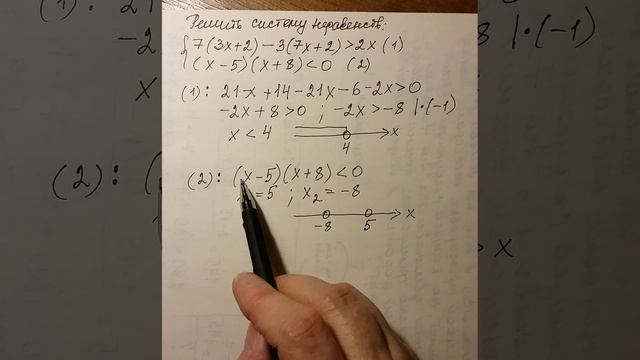 Решить систему неравенств:
{ 7(3x+2)-3(7x+2)>2x (1)
(x-5)(x+8)<0 (2)
(1): 21x+14-21x-6-2x>0
-2x+8>0 ; -2x>-8 |·(-1)
x<4
x
4
(2): (x-5)(x+8)<0
=5 ; x₂=-8
x
-8 5